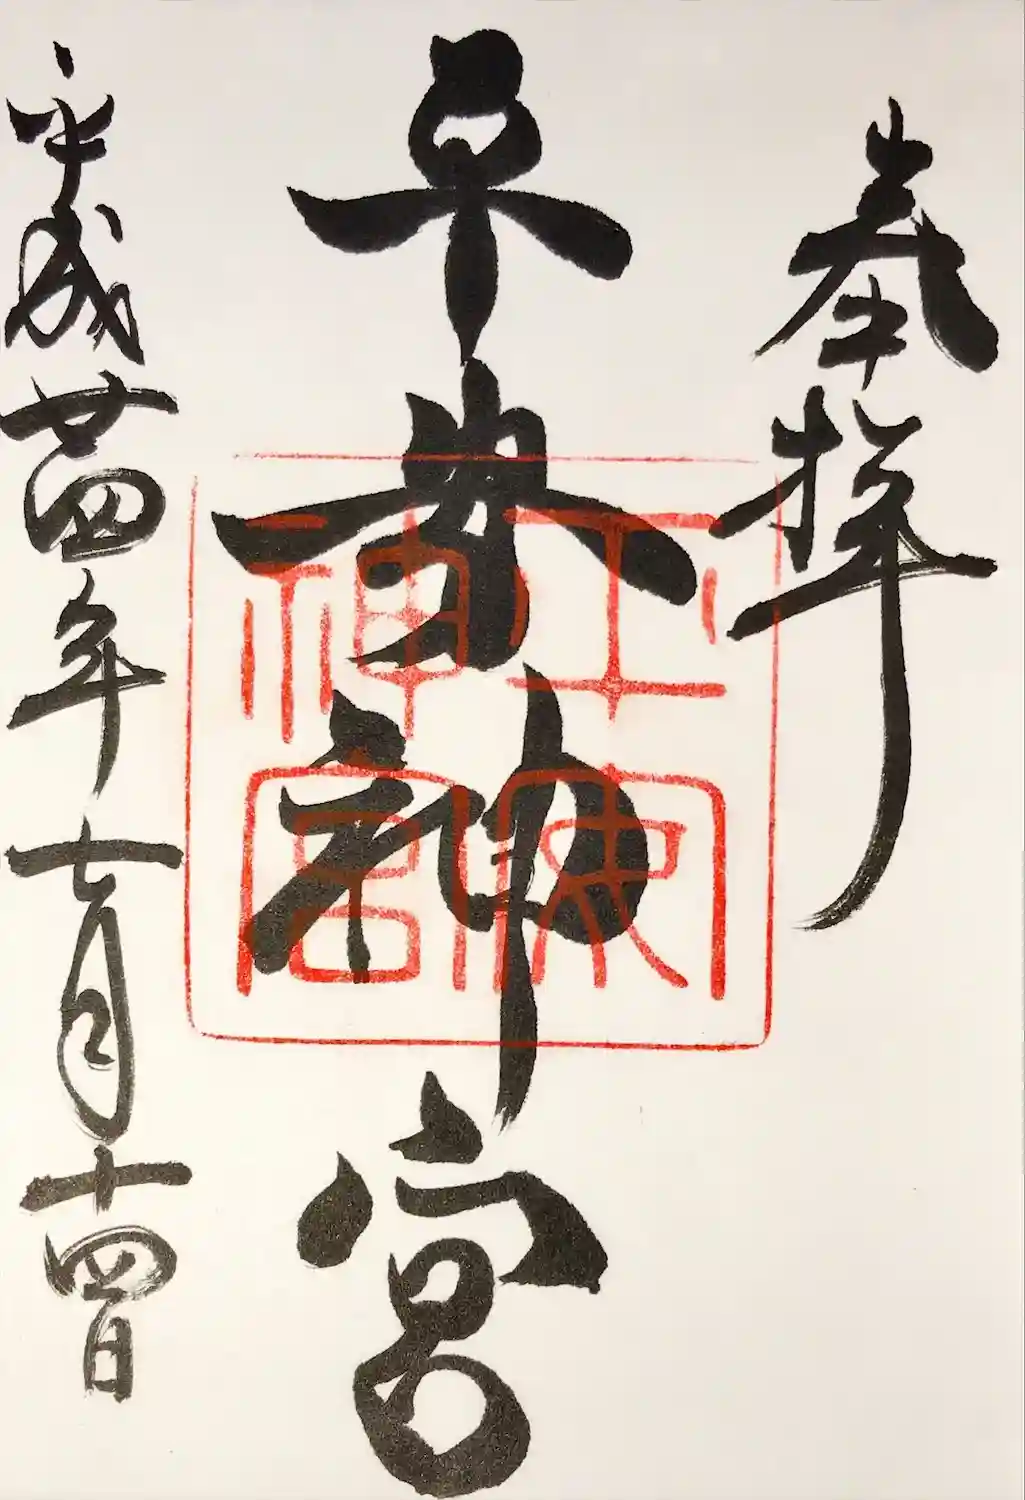 奉拝
平安神宮
平安神宮
平成廿四年七月十四日